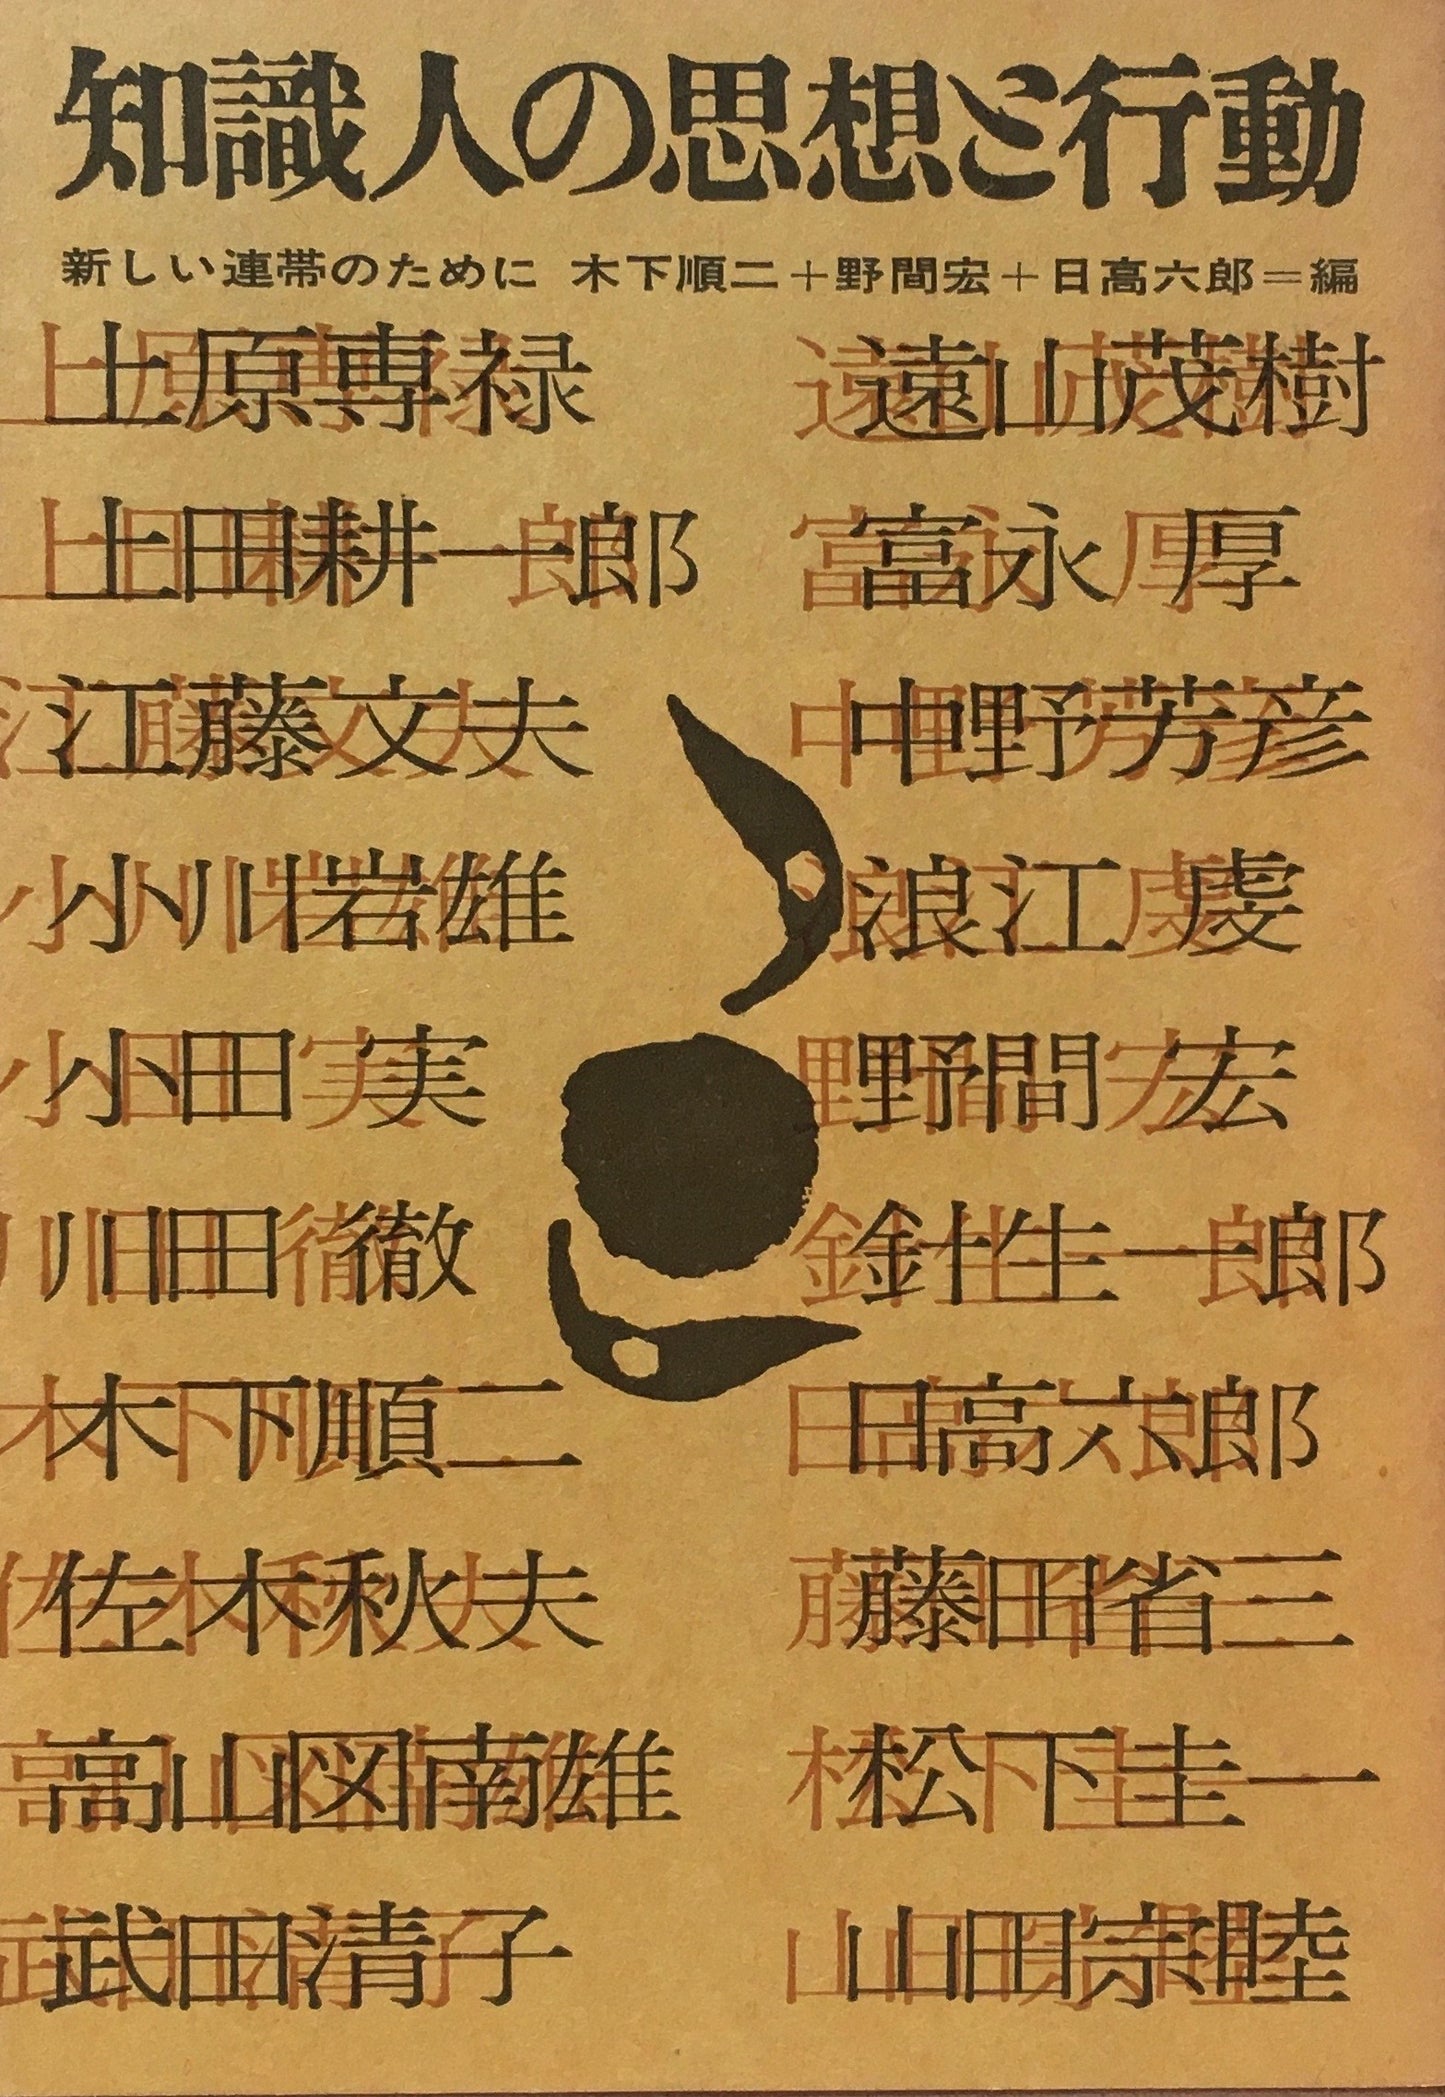 知識人の思想と行動
新しい連帯のために 木下順二+野間宏+日高六郎=編
上原専禄
上田耕一郎
江藤文夫
小川岩雄
小田実
川田徹
木下順二
佐木秋夫
高山図南雄
武田清子
遠山茂樹
富永厚
中野芳彦
浪江虔
野間宏
針生一郎
日高六郎
藤田省三
松下圭一
山田宗睦